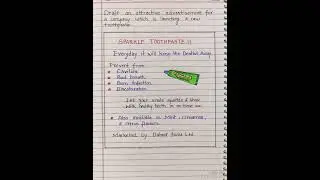 Draft an attractive advertisement for
a company which is launching a new
toothpaste.
SPARKLE TOOTHPASTE !!
Everyday it will keep the Dentist Away
Prevent from
Cavities
Bad breath
Gum Infection
Discoloration
Let your smile sparkle & shine
With healthy teeth in no time
Also available in Mint, cinnamon,
& citrus flavors.
Marketed by Dabur India Ltd